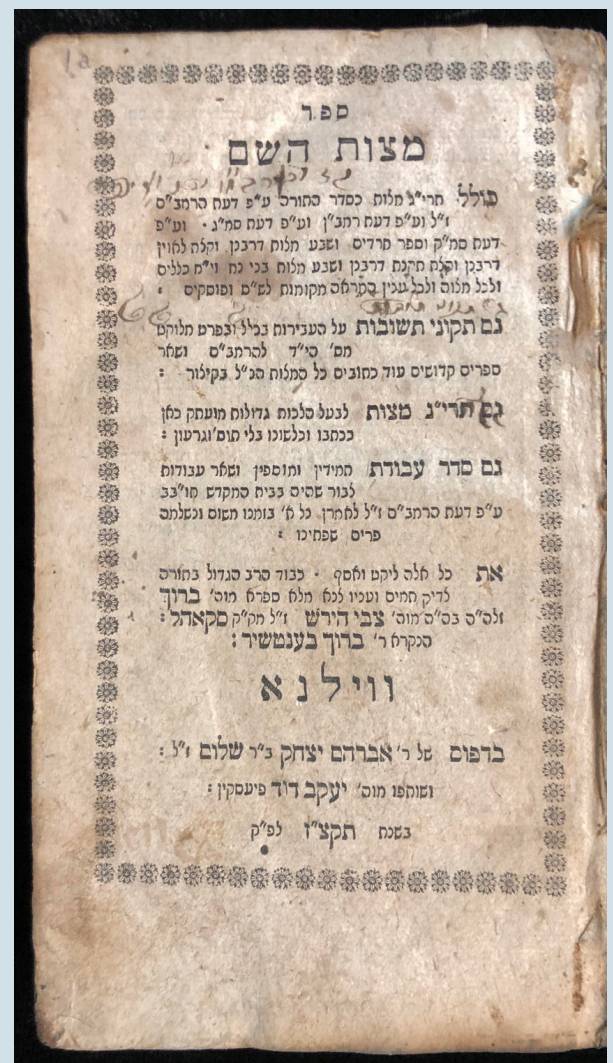 1a
ספר
מצות השם
כולל תרי״ג מצות כסדר התורה ע״פ דעת הרמב״ם
ז״ל וע״פ דעת רמב״ן וע״פ דעת סמ״ג · וע״פ
דעת סמ״ק וספר חרדים ושבע מצות דרבנן וקצת לאוין
דרבנן וקצת תקנת דרבנן ושבע מצות בני נח וי״ח כללים
ולכל מצוה ולכל ענין התראה מקומות לש״ס ופוסקים :
גם תקוני תשובות על העבירות בכלל ובפרט מלוקט
מס׳ הי״ד להרמב״ם ושאר
ספרים קדושים עוד כתובים כל המצות הנ״ל בקיצור :
גם תרי״ג מצות לבעל הלכות גדולות מועתק כאן
ככתבו וכלשונו בלי תוס׳ וגרעון :
גם סדר עבודת תמידין ומוספין ושאר עבודות
צבור שהיה בבית המקדש תו״בב
ע״פ דעת הרמב״ם ז״ל לאמרן כל א׳ בזמנו משום ונשלמה
פרים שפתינו :
את כל אלה ליקט ואסף · כבוד הרב הגדול בתורה
צדיק תמים ועניו צנא מלא ספרא מוה׳ ברוך
זלה״ה בה״ה מוה׳ צבי הירש ז״ל מק״ק סקאהל :
הנקרא ר׳ ברוך בענטשיר :
ווילנא
בדפוס של ר׳ אברהם יצחק ב״ר שלום ז״ל :
ושותפו מוה׳ יעקב דוד פיעסקין :
בשנת תקצ״ז לפ״ק